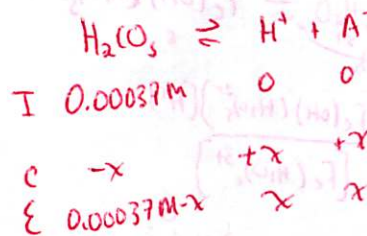 H₂CO₃ ⇌ H⁺ + A⁻
I 0.00037M 0 0
C -x +x +x
E 0.00037M-x x x